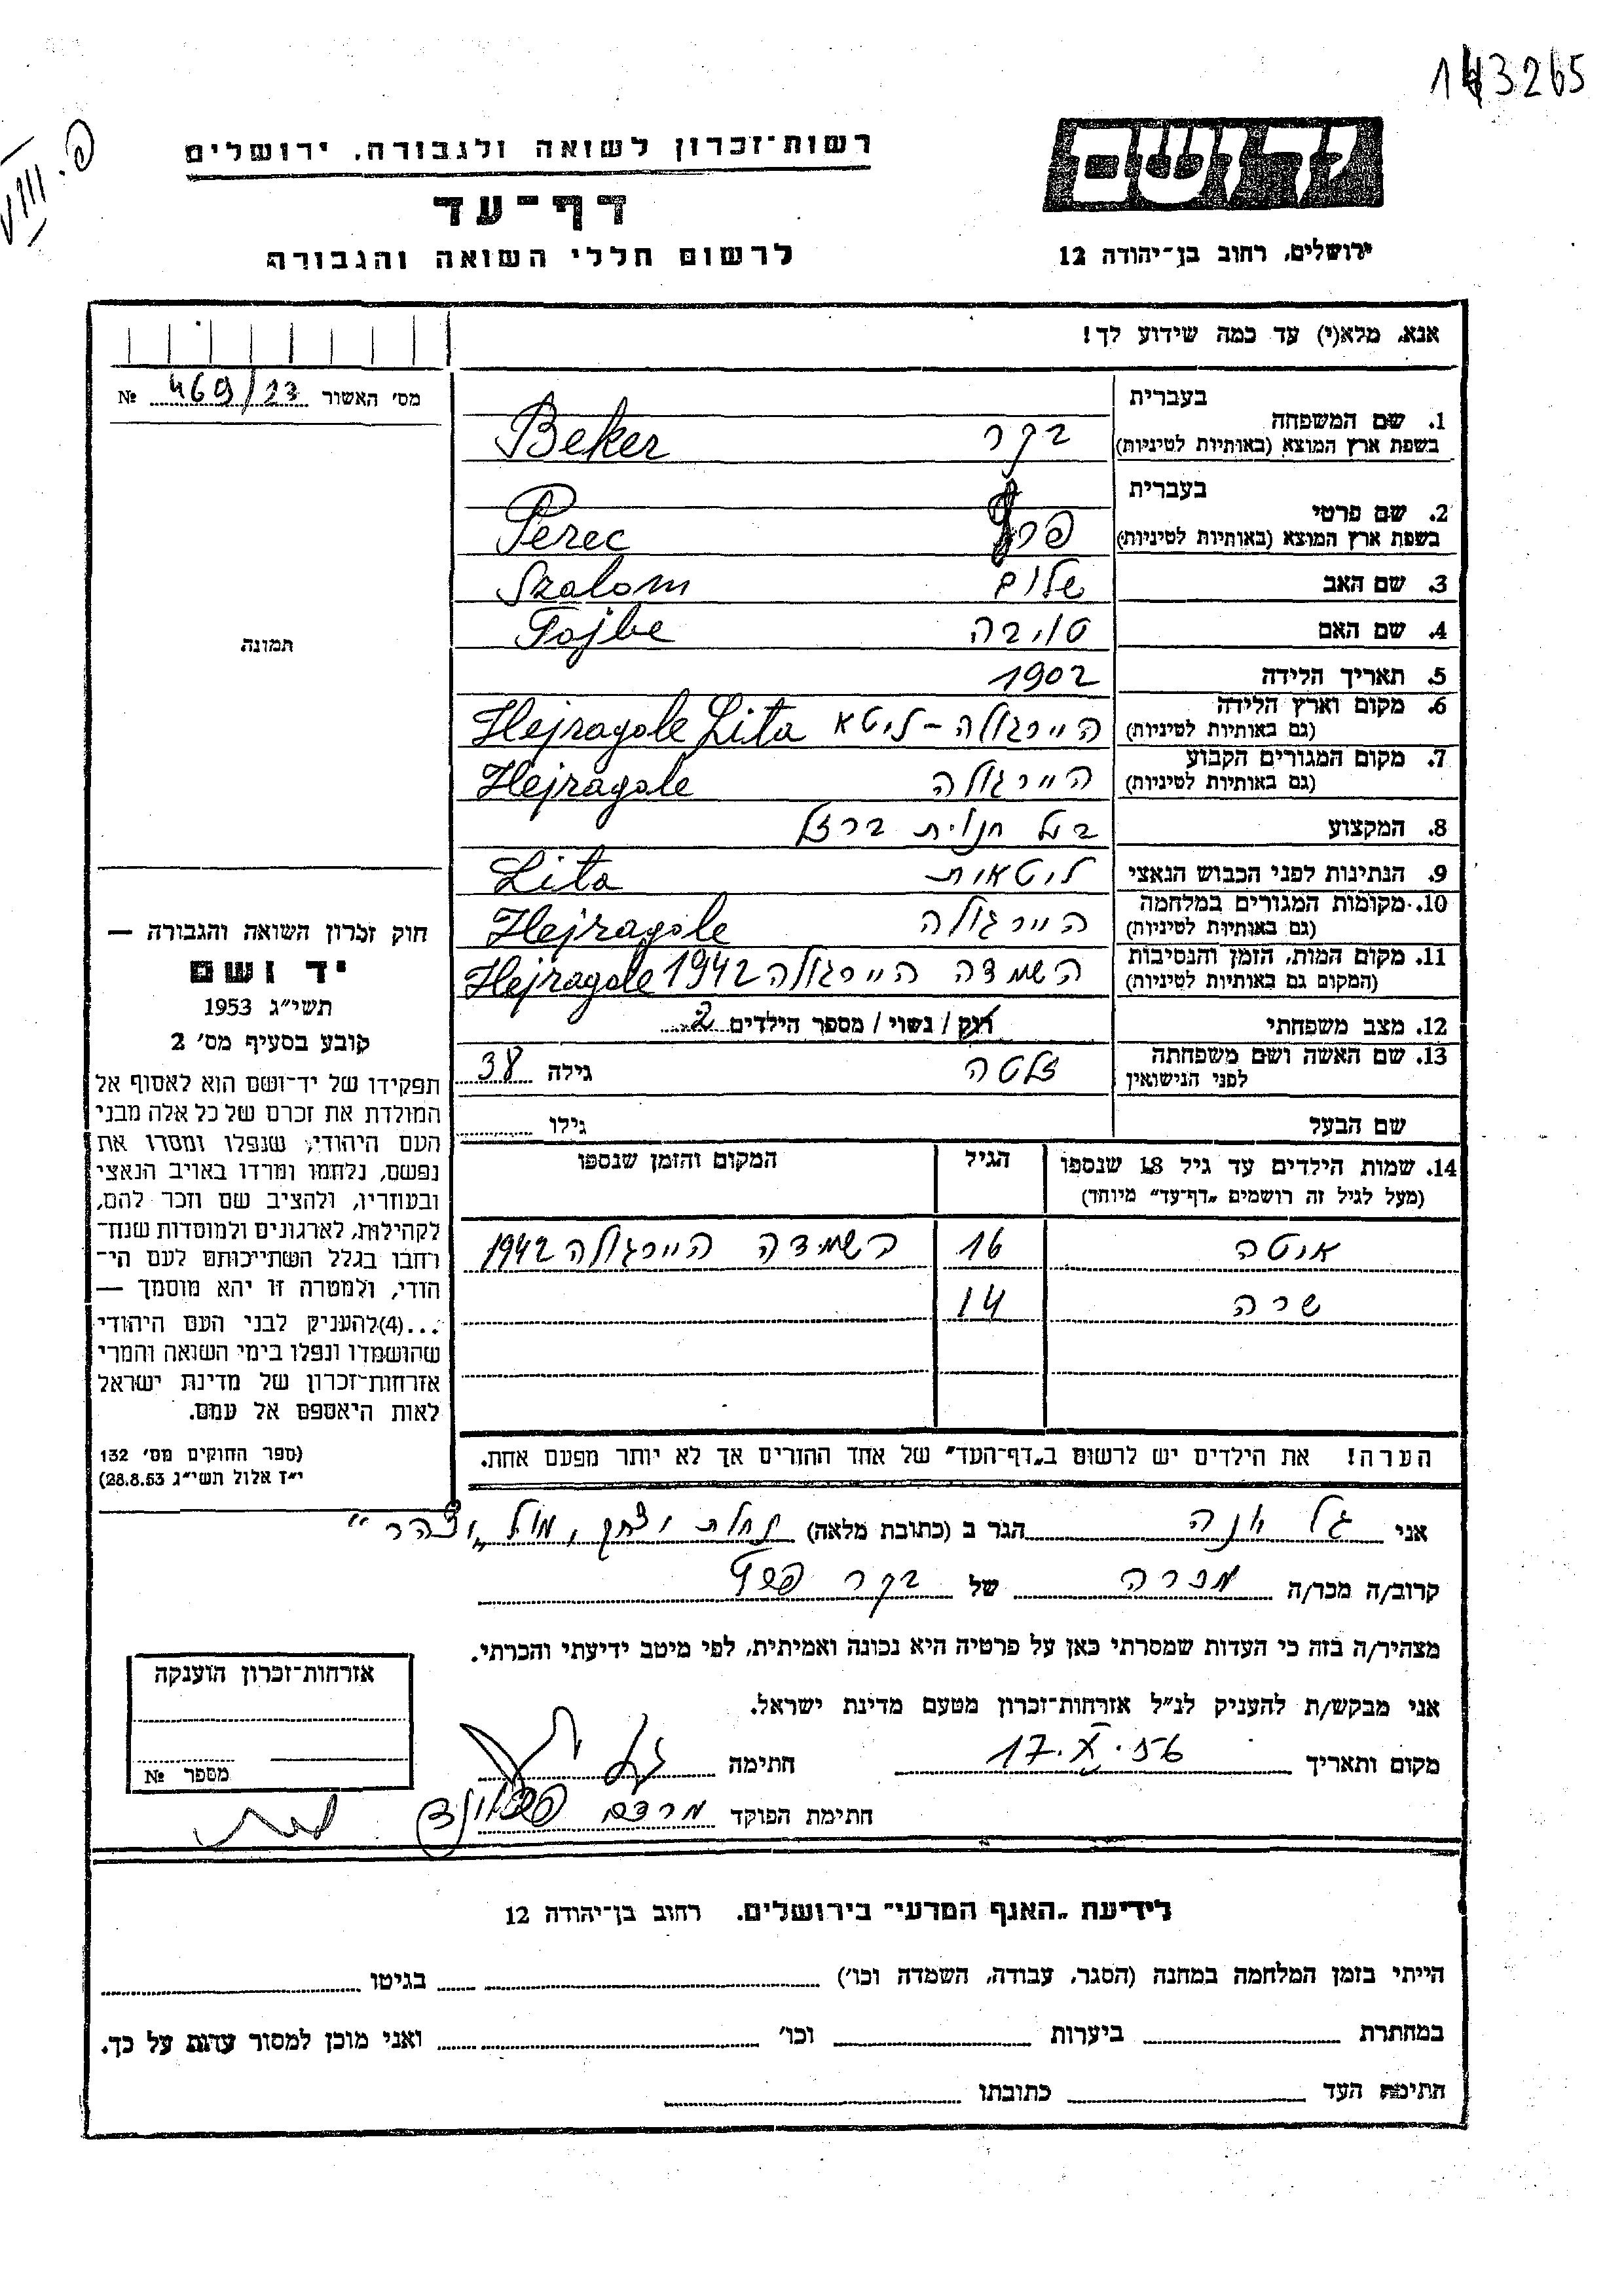 143265
פ. VIII
יד ושם
ירושלים, רחוב בן־יהודה 12
רשות־זכרון לשואה ולגבורה, ירושלים
דף־עד
לרשום חללי השואה והגבורה
אנא, מלא(י) עד כמה שידוע לך!
מס' האשור 469/23 №
תמונה
1. שם המשפחה בעברית
בשפת ארץ המוצא (באותיות לטיניות) בקר Beker
2. שם פרטי בעברית
בשפת ארץ המוצא (באותיות לטיניות) פרץ Perec
3. שם האב שלום Szalom
4. שם האם טויבה Tojbe
5. תאריך הלידה 1902
6. מקום וארץ הלידה
(גם באותיות לטיניות) היירגולה - ליטא Hejragole Lita
7. מקום המגורים הקבוע
(גם באותיות לטיניות) היירגולה Hejragole
8. המקצוע בעל חנוית ברזל
9. הנתינות לפני הכבוש הנאצי ליטאית Lita
10. מקומות המגורים במלחמה
(גם באותיות לטיניות) היירגולה Hejragole
11. מקום המות, הזמן והנסיבות
(המקום גם באותיות לטיניות) השמדה היירגולה 1942 Hejragole
12. מצב משפחתי רוק / נשוי / מספר הילדים 2
13. שם האשה ושם משפחתה
לפני הנישואין זלטה גילה 38
שם הבעל גילו
14. שמות הילדים עד גיל 18 שנספו הגיל המקום והזמן שנספו
(מעל לגיל זה רושמים "דף־עד" מיוחד)
איטה 16 השמדה היירגולה 1942
שרה 14
הערה! את הילדים יש לרשום ב"דף־העד" של אחד ההורים אך לא יותר מפעם אחת.
חוק זכרון השואה והגבורה —
יד ושם
תשי"ג 1953
קובע בסעיף מס' 2
תפקידו של יד־ושם הוא לאסוף אל
המולדת את זכרם של כל אלה מבני
העם היהודי, שנפלו ומסרו את
נפשם, נלחמו ומרדו באויב הנאצי
ובעוזריו, ולהציב שם וזכר להם,
לקהילות, לארגונים ולמוסדות שנח־
רחבו בגלל השתייכותם לעם הי־
הודי, ולמטרה זו יהא מוסמך —
...(4)להעניק לבני העם היהודי
שהושמדו ונפלו בימי השואה והמרי
אזרחות־זכרון של מדינת ישראל
לאות היאספם אל עמם.
(ספר החוקים מס' 132
י"ז אלול תשי"ג 28.8.53)
אני גל יונה הגר ב (כתובת מלאה) נחלת יצחק, מול "יצהר"
קרוב/ה מכר/ה מכרה של בקר פרץ
מצהיר/ה בזה כי העדות שמסרתי כאן על פרטיה היא נכונה ואמיתית, לפי מיטב ידיעתי והכרתי.
אני מבקש/ת להעניק לנ"ל אזרחות־זכרון מטעם מדינת ישראל.
מקום ותאריך 17.X.56 חתימה גל
חתימת הפוקד מרדכי
אזרחות־זכרון הוענקה
מספר №
לידיעת "האגף המדעי" בירושלים, רחוב בן־יהודה 12
הייתי בזמן המלחמה במחנה (הסגר, עבודה, השמדה וכו') בגיטו
במחתרת ביערות וכו' ואני מוכן למסור עדות על כך.
חתימת העד כתובתו